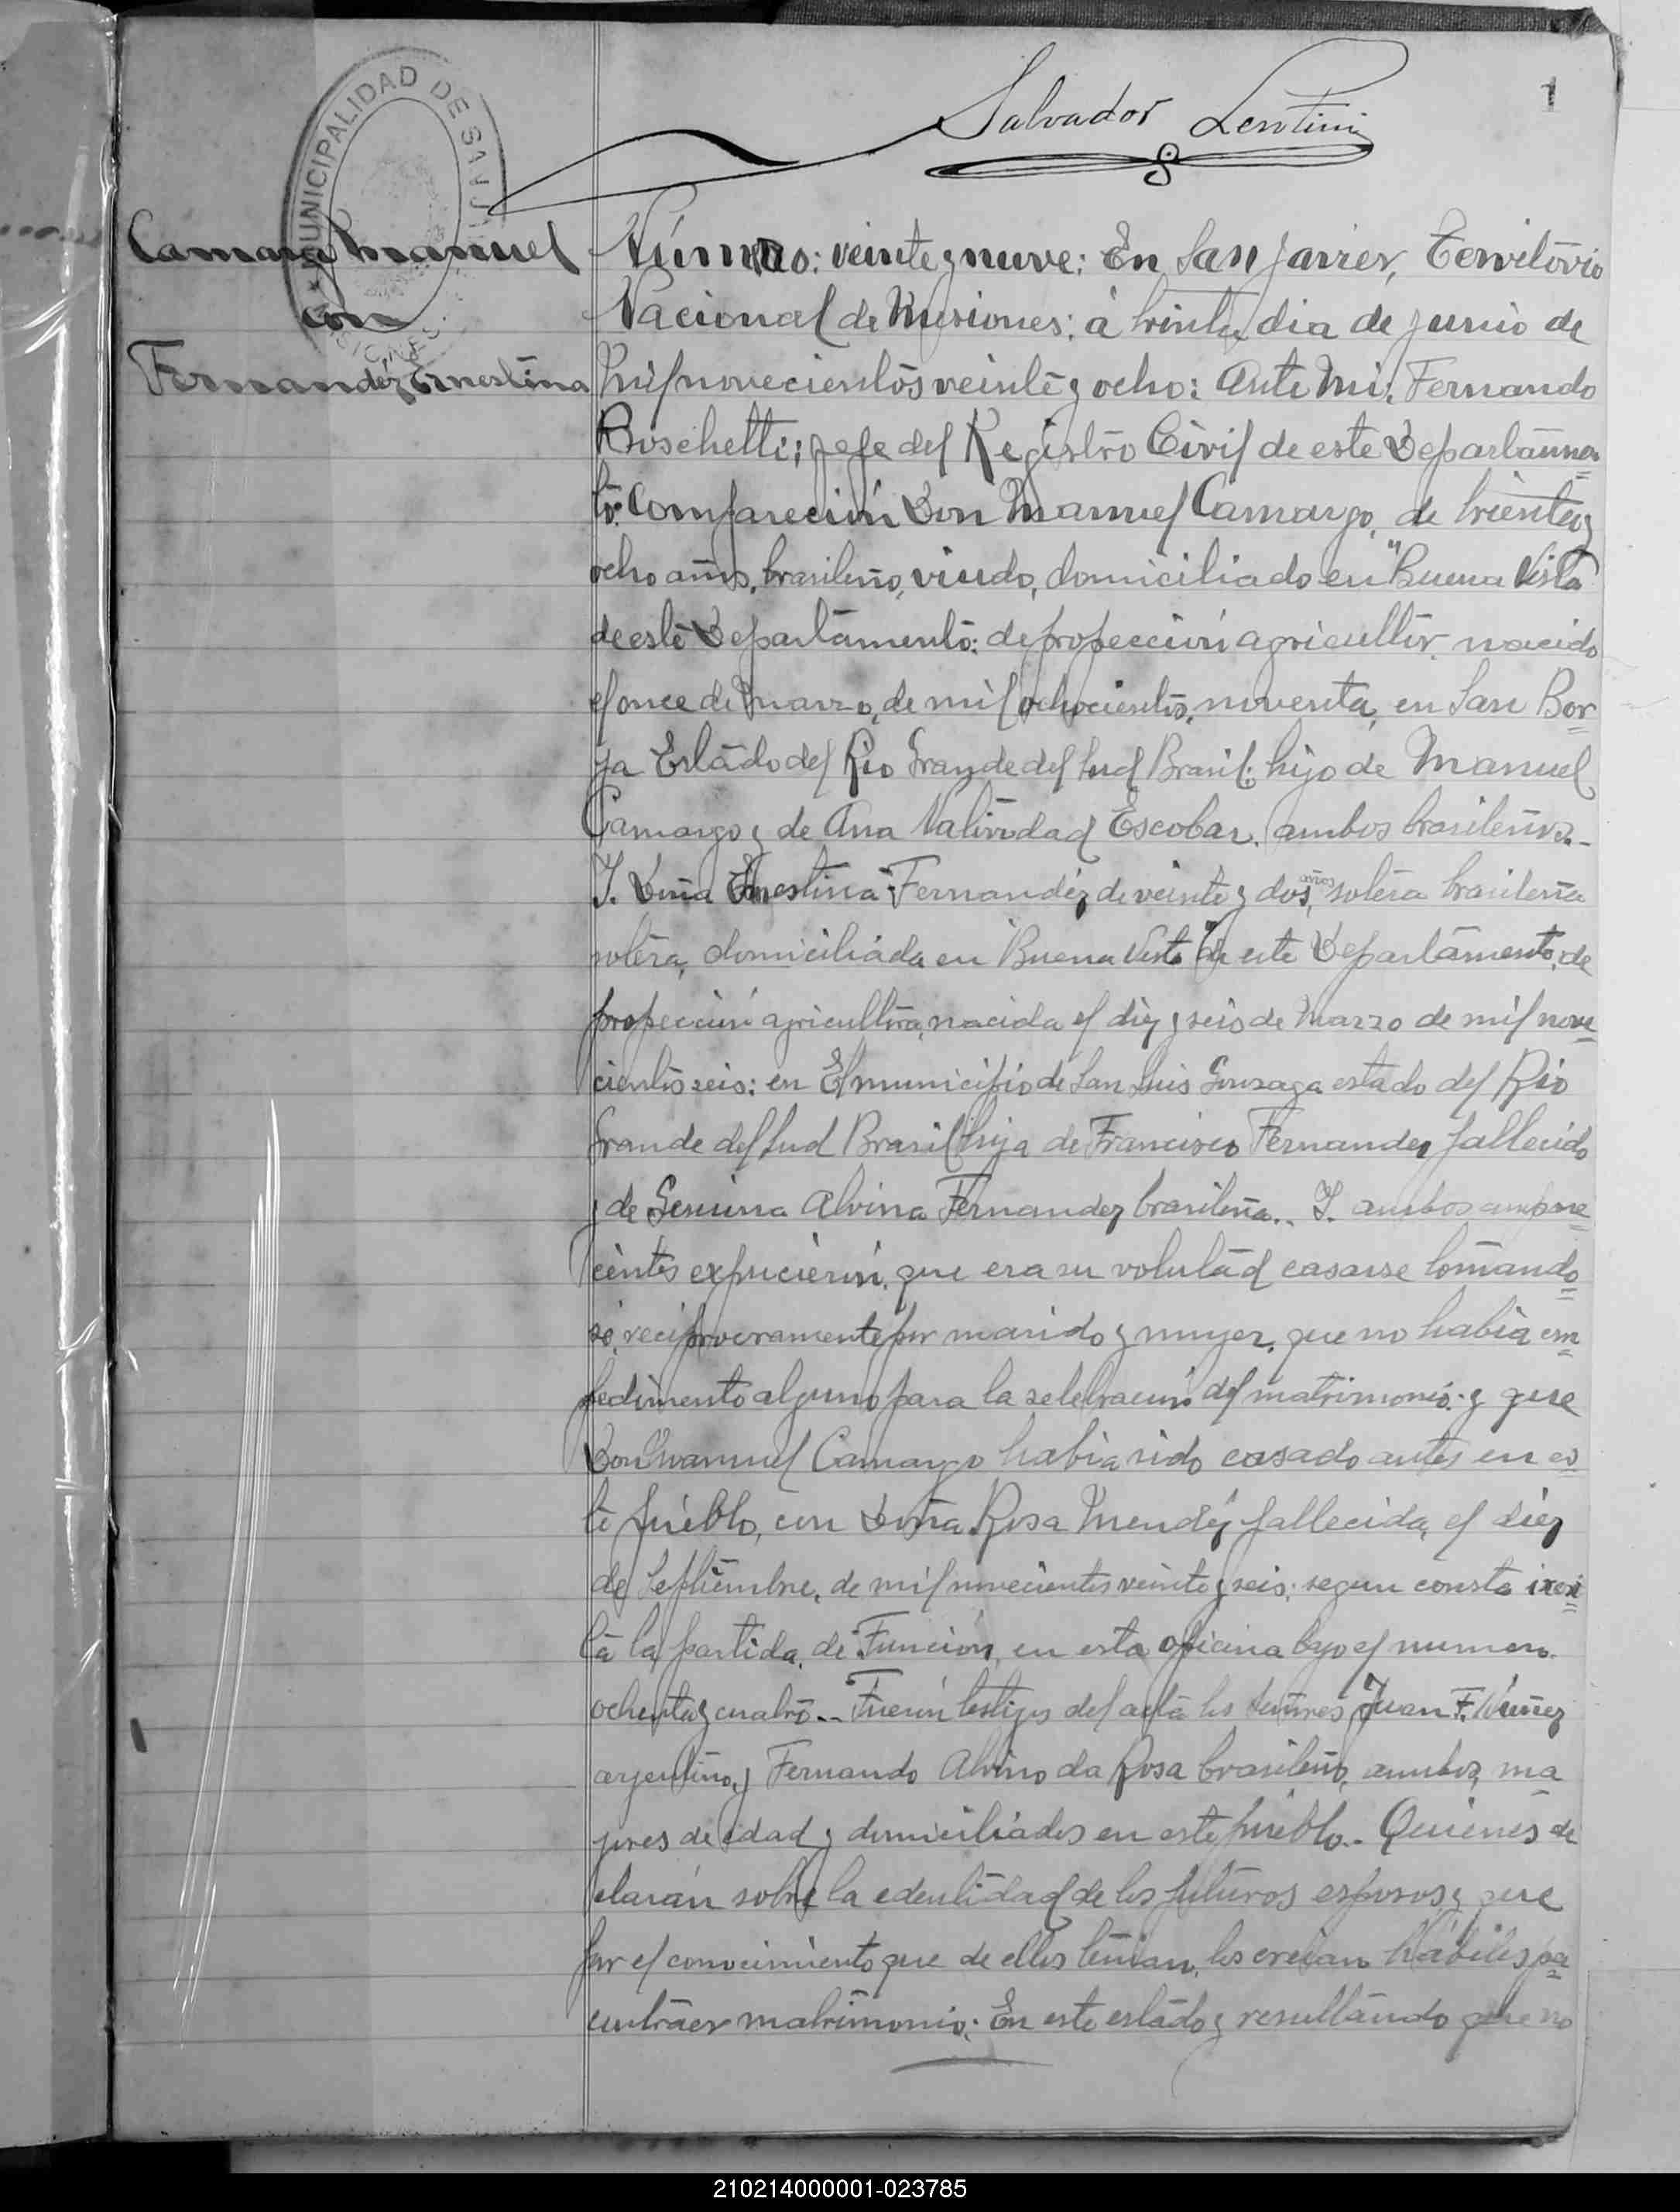 1
Salvador Lentini
MUNICIPALIDAD DE SAN J
Camargo Manuel
con
Fernandez Ernestina
Número: veinte y nueve: En San Javier, Territorio
Nacional de Misiones: á trinta dia de junio de
Mil novecientos veinte y ocho: Ante Mi, Fernando
Boschetti; jefe del Registro Civil de este Departamen
to: Compareción Don Manuel Camargo, de trienta y
ocho años, brasileño, viudo, domiciliado en "Buena Vista
de este Departamento: de profección agricultor, nacido
el once de Marzo, de mil ochocientos, noventa, en San Bor
ja Estado del Rio Grande del Sud Brasil: hijo de Manuel
Camargo y de Ana Natividad Escobar, ambos brasileños.-
Y. Doña Ernestina Fernandéz de veinte y dos, años solera brasileña
solera, domiciliada en Buena Vista" de este Departamento, de
profección agricultora, nacida el diez y seis de Marzo de mil nove
cientos seis: en El municipio de San Luis Gonzaga estado del Rio
Grande del Sud Brasil hija de Francisco Fernandez fallecido
y de Alvina Fernandez brasileña.. Y. ambos compare
cientes expucierón, que era su volutad casarse tomando
se, reciprocramente por marido y muyer, que no habia em
pedimento alguno para la selebración del matrimonio: y que
Don Manuel Camargo habia sido casado antes en es
te pueblo, con Doña Rosa Mendéz fallecida, el diez
de Septiembre, de mil novecientos veinte y seis: segun consta
la partida, de Función, en esta oficina bajo el numero
ochenta y cuatro.. Fuerón testigos del acta los señores Juan F. Núñez
argentino, y Fernando Alvino da Rosa brasileño, ambos, ma
yores de edad y domiciliados en este pueblo.. Quienes de
clarán sobre la edentidad de los futuros esposos y que
por el conocimiento que de ellos tenian, los creian hábiles pa
contraer matrimonio: En este estado y resultando que no
210214000001-023785